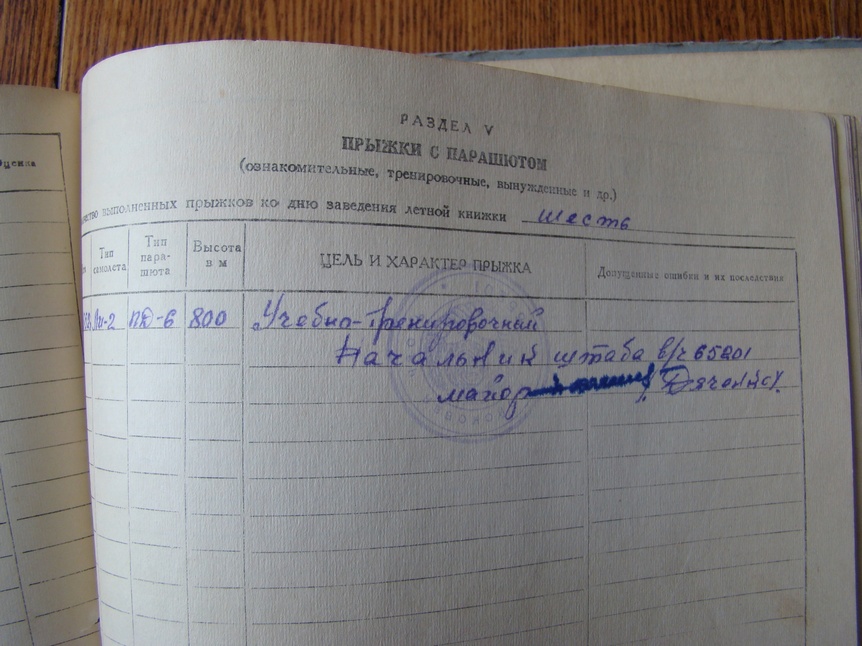 Оценка
РАЗДЕЛ V
ПРЫЖКИ С ПАРАШЮТОМ
(ознакомительные, тренировочные, вынужденные и др.)
выполненных прыжков ко дню заведения летной книжки шесть
Тип самолета Тип пара-шюта Высота в м ЦЕЛЬ И ХАРАКТЕР ПРЫЖКА Допущенные ошибки и их последствия
Ли-2 ПД-6 800 Учебно-тренировочный
Начальник штаба в/ч 65201
майор